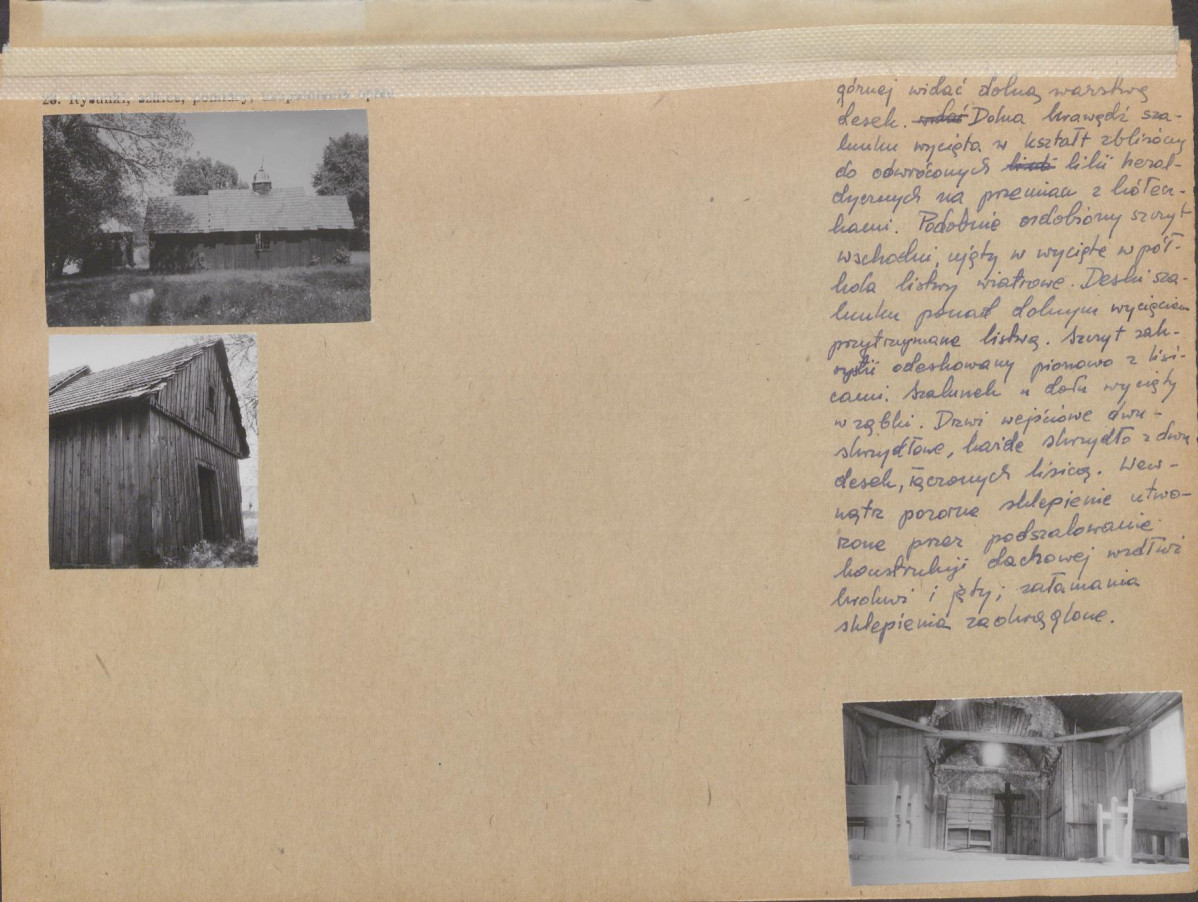 28. Rysunki, szkice, pomiary,
górnej widać dolną warstwę
desek. widać Dolna krawędź sza-
lunku wycięta w kształt zbliżony
do odwróconych lilii heral-
dycznych na przemian z kółecz-
kami. Podobnie ozdobiony szczyt
wschodni, ujęty w wycięte w pół-
kola listwy wiatrowe. Deski sza-
lunku ponad dolnym wycięciem
przytrzymane listwą. Szczyt zak-
rystii odeskowany pionowo z lisi-
cami. Szalunek u dołu wycięty
w ząbki. Drzwi wejściowe dwu-
skrzydłowe, każde skrzydło z dwu
desek, łączonych lisicą. Wew-
nątrz pozorne sklepienie utwo-
rzone przez podszalowanie
konstrukcji dachowej wzdłuż
krokwi i jęty; załamania
sklepienia zaokrąglone.